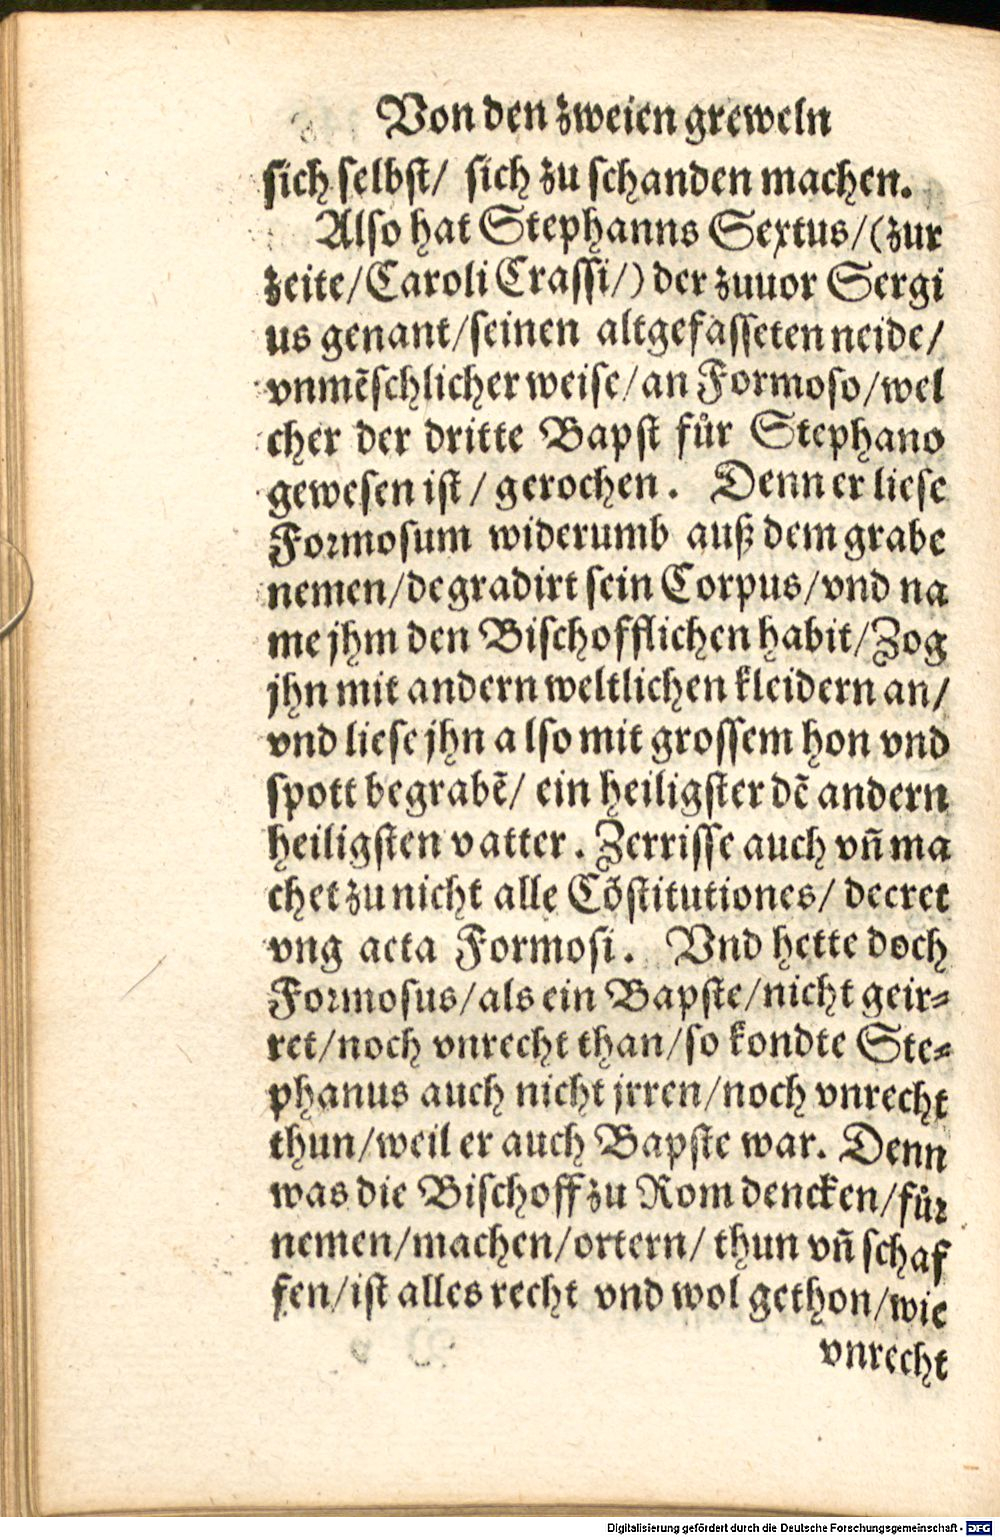 Von den zweien greweln
sich selbst/ sich zu schanden machen.
Also hat Stephanns Sextus/(zur
zeite/Caroli Crassi/) der zuuor Sergi
us genant/seinen altgefasseten neide/
vnmẽschlicher weise/an Formoso/wel
cher der dritte Bapst fuͤr Stephano
gewesen ist/ gerochen. Denn er liese
Formosum widerumb auß dem grabe
nemen/degradirt sein Corpus/vnd na
me jhm den Bischofflichen habit/Zog
jhn mit andern weltlichen kleidern an/
vnd liese jhn also mit grossem hon vnd
spott begrabẽ/ ein heiligster dẽ andern
heiligsten vatter. Zerrisse auch vñ ma
chet zu nicht alle Cõstitutiones/ decret
vng acta Formosi. Vnd hette doch
Formosus/als ein Bapste/nicht geir⸗
ret/noch vnrecht than/so kondte Ste⸗
phanus auch nicht jrren/noch vnrecht
thun/weil er auch Bapste war. Denn
was die Bischoff zu Rom dencken/fuͤr
nemen/machen/ortern/ thun vñ schaf
fen/ist alles recht vnd wol gethon/wie
vnrecht
Digitalisierung gefördert durch die Deutsche Forschungsgemeinschaft - DFG